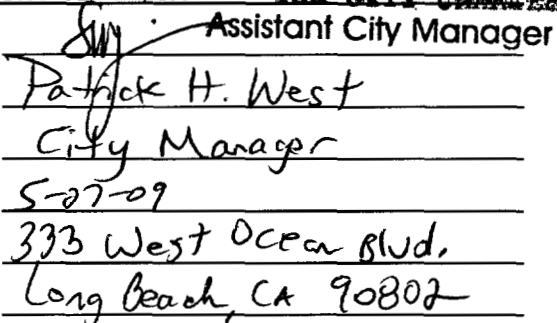 Assistant City Manager
Patrick H. West
City Manager
5-27-09
333 West Ocean Blvd.
Long Beach, CA 90802